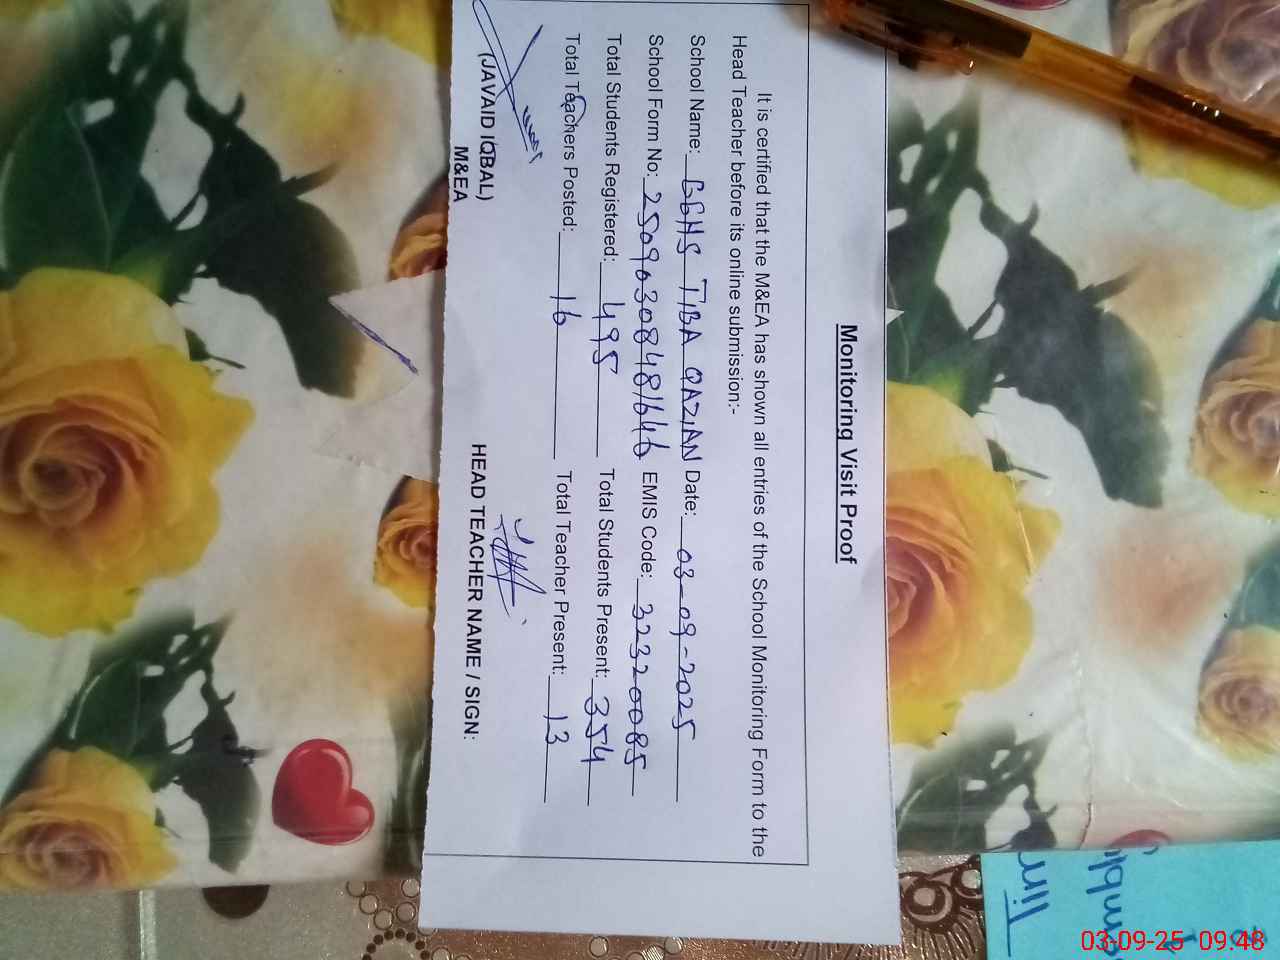 Monitoring Visit Proof
It is certified that the M&EA has shown all entries of the School Monitoring Form to the
Head Teacher before its online submission:-
School Name: GGHS TIBA QAZIAN Date: 03-09-2025
School Form No: 25090308481646 EMIS Code: 32320085
Total Students Registered: 495 Total Students Present: 354
Total Teachers Posted: 16 Total Teacher Present: 13
(JAVAID IQBAL)
M&EA
HEAD TEACHER NAME / SIGN:
03-09-25 09:48